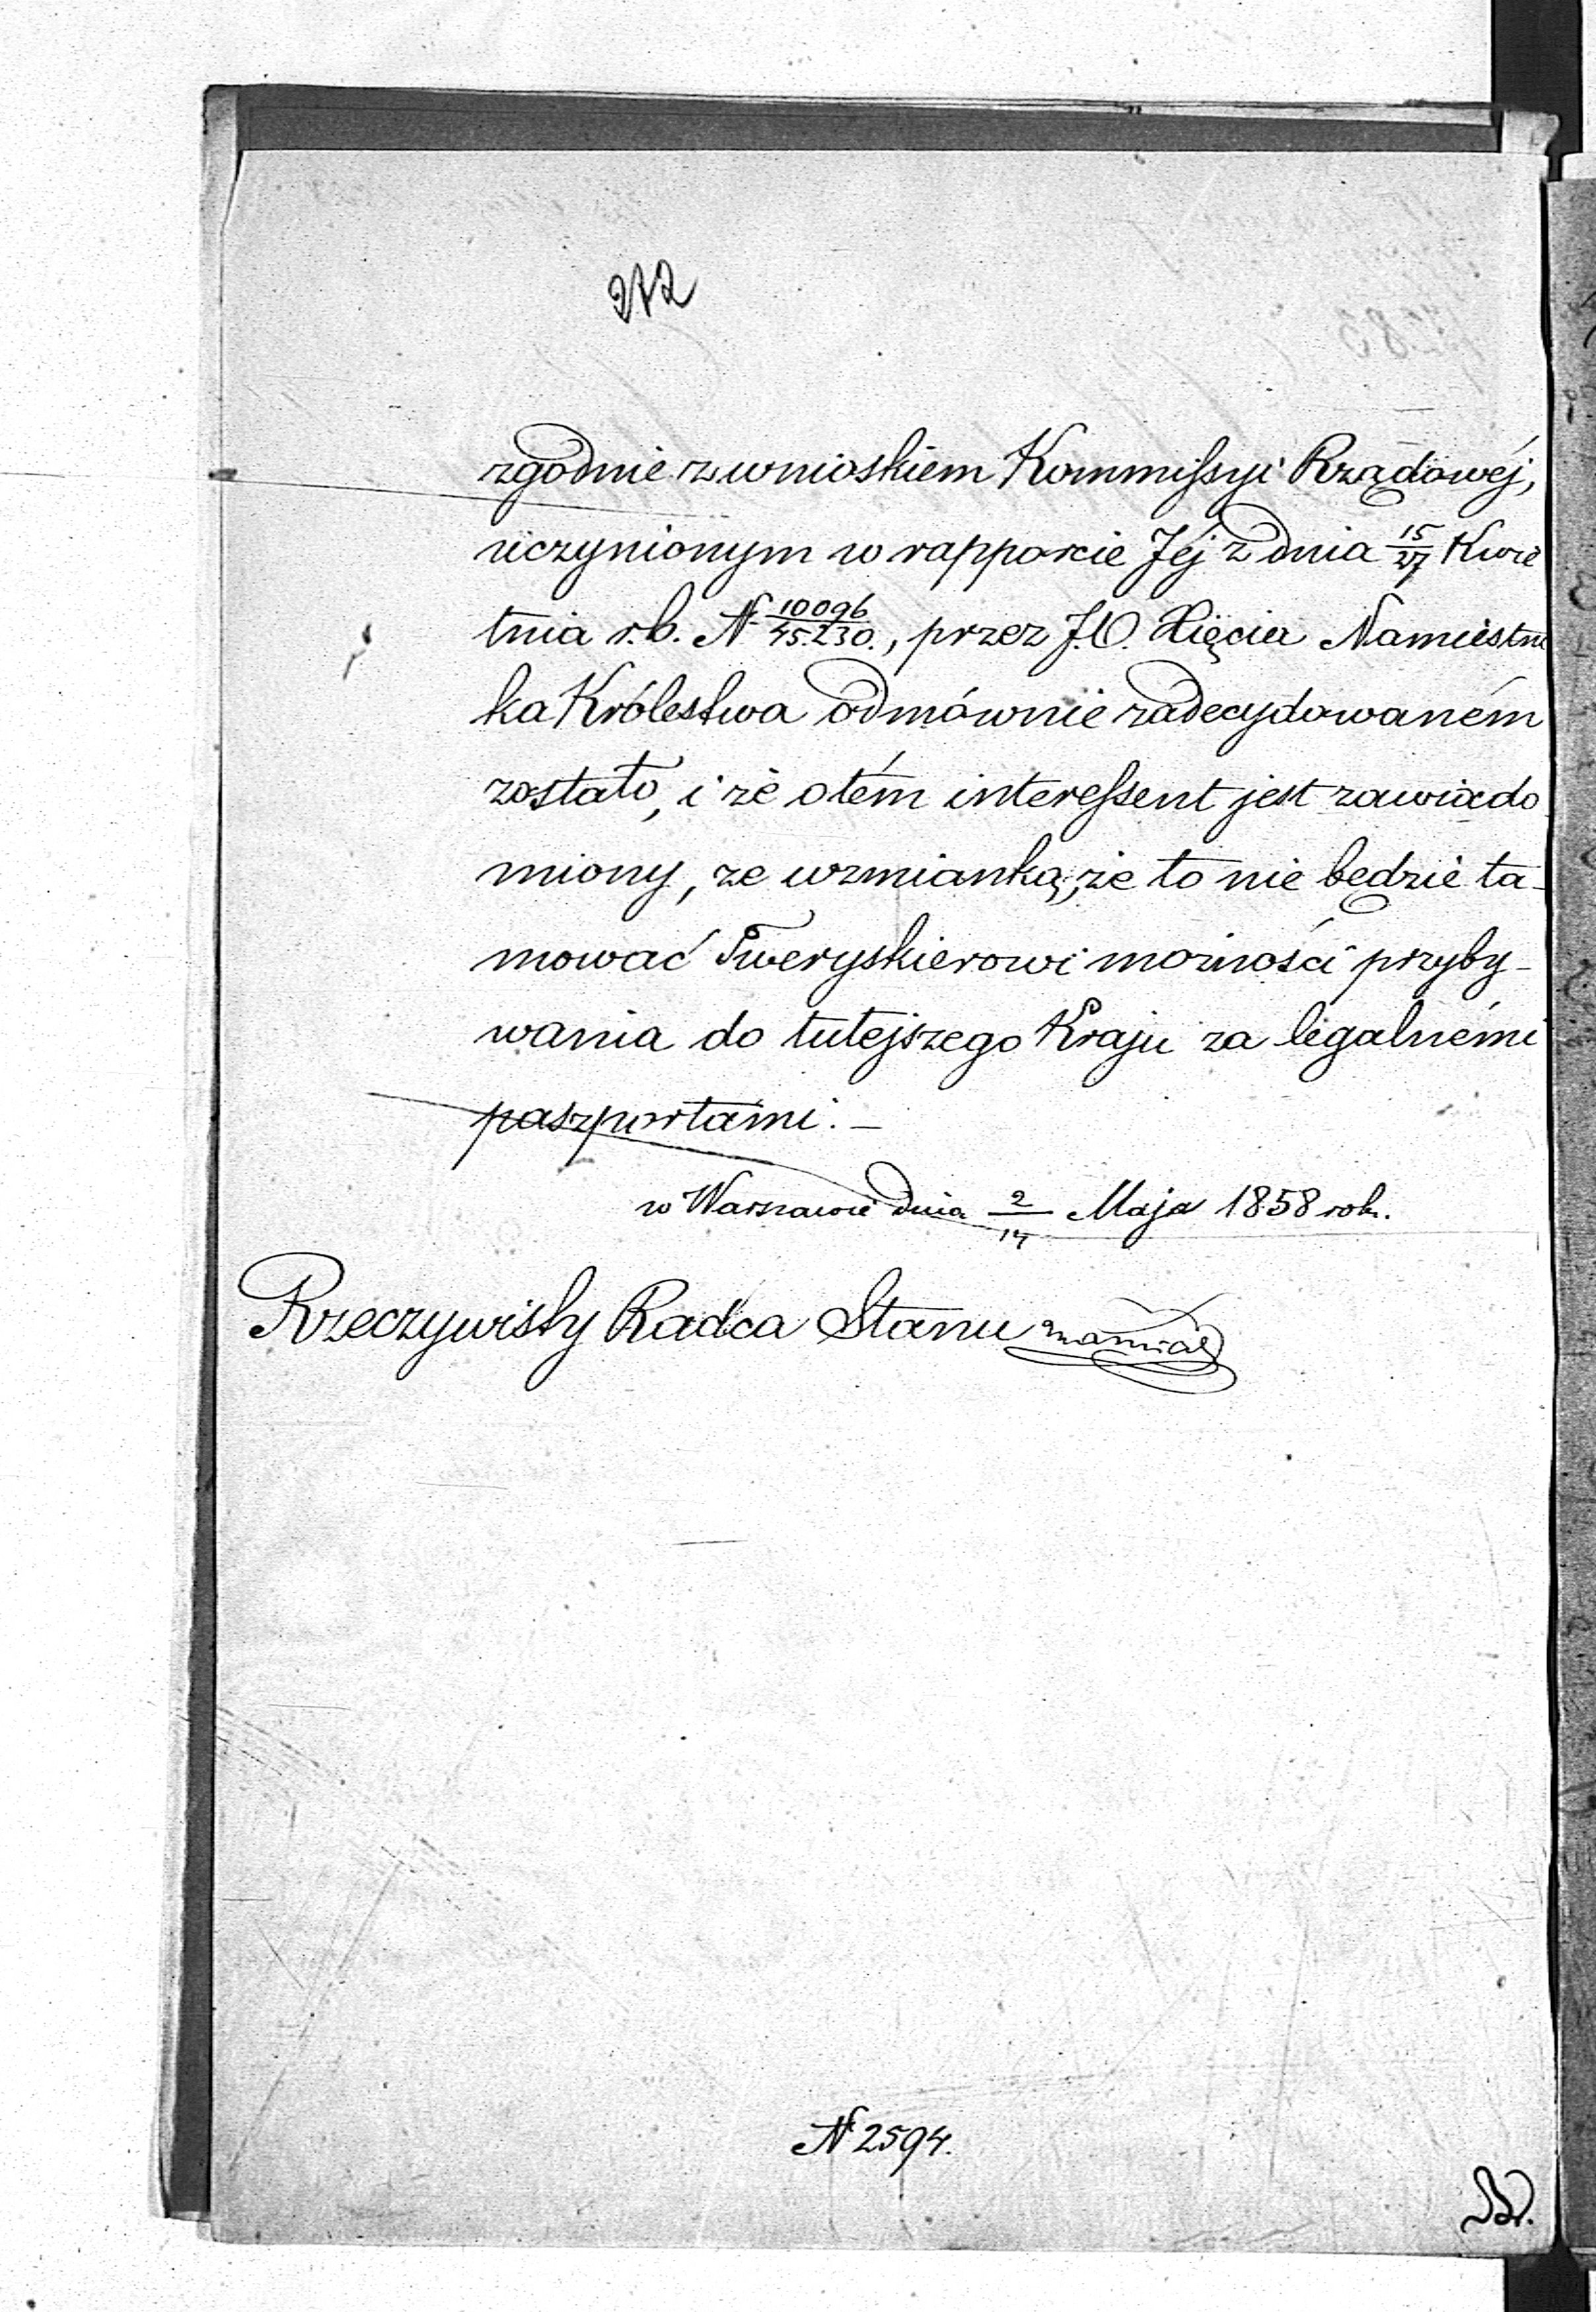 272
zgodnie z wnioskiem Kommissyi Rządowéj,
uczynionym w rapporcie Jéj z dnia 15/27 Kwie
tnia r.b. N 10096/45.230., przez J.O. Xięcia Namiestni
ka Królestwa odmównie zadecydowaném
zostało, i że o tém interessent jest zawiado
miony, ze wzmianką, że to nie będzie ta-
mować Tweryskierowi możności przyby-
wania do tutejszego Kraju za legalnémi
paszportami. —
w Warszawie dnia 2/14 Maja 1858 rok.
Rzeczywisty Radca Stanu
N 2594.